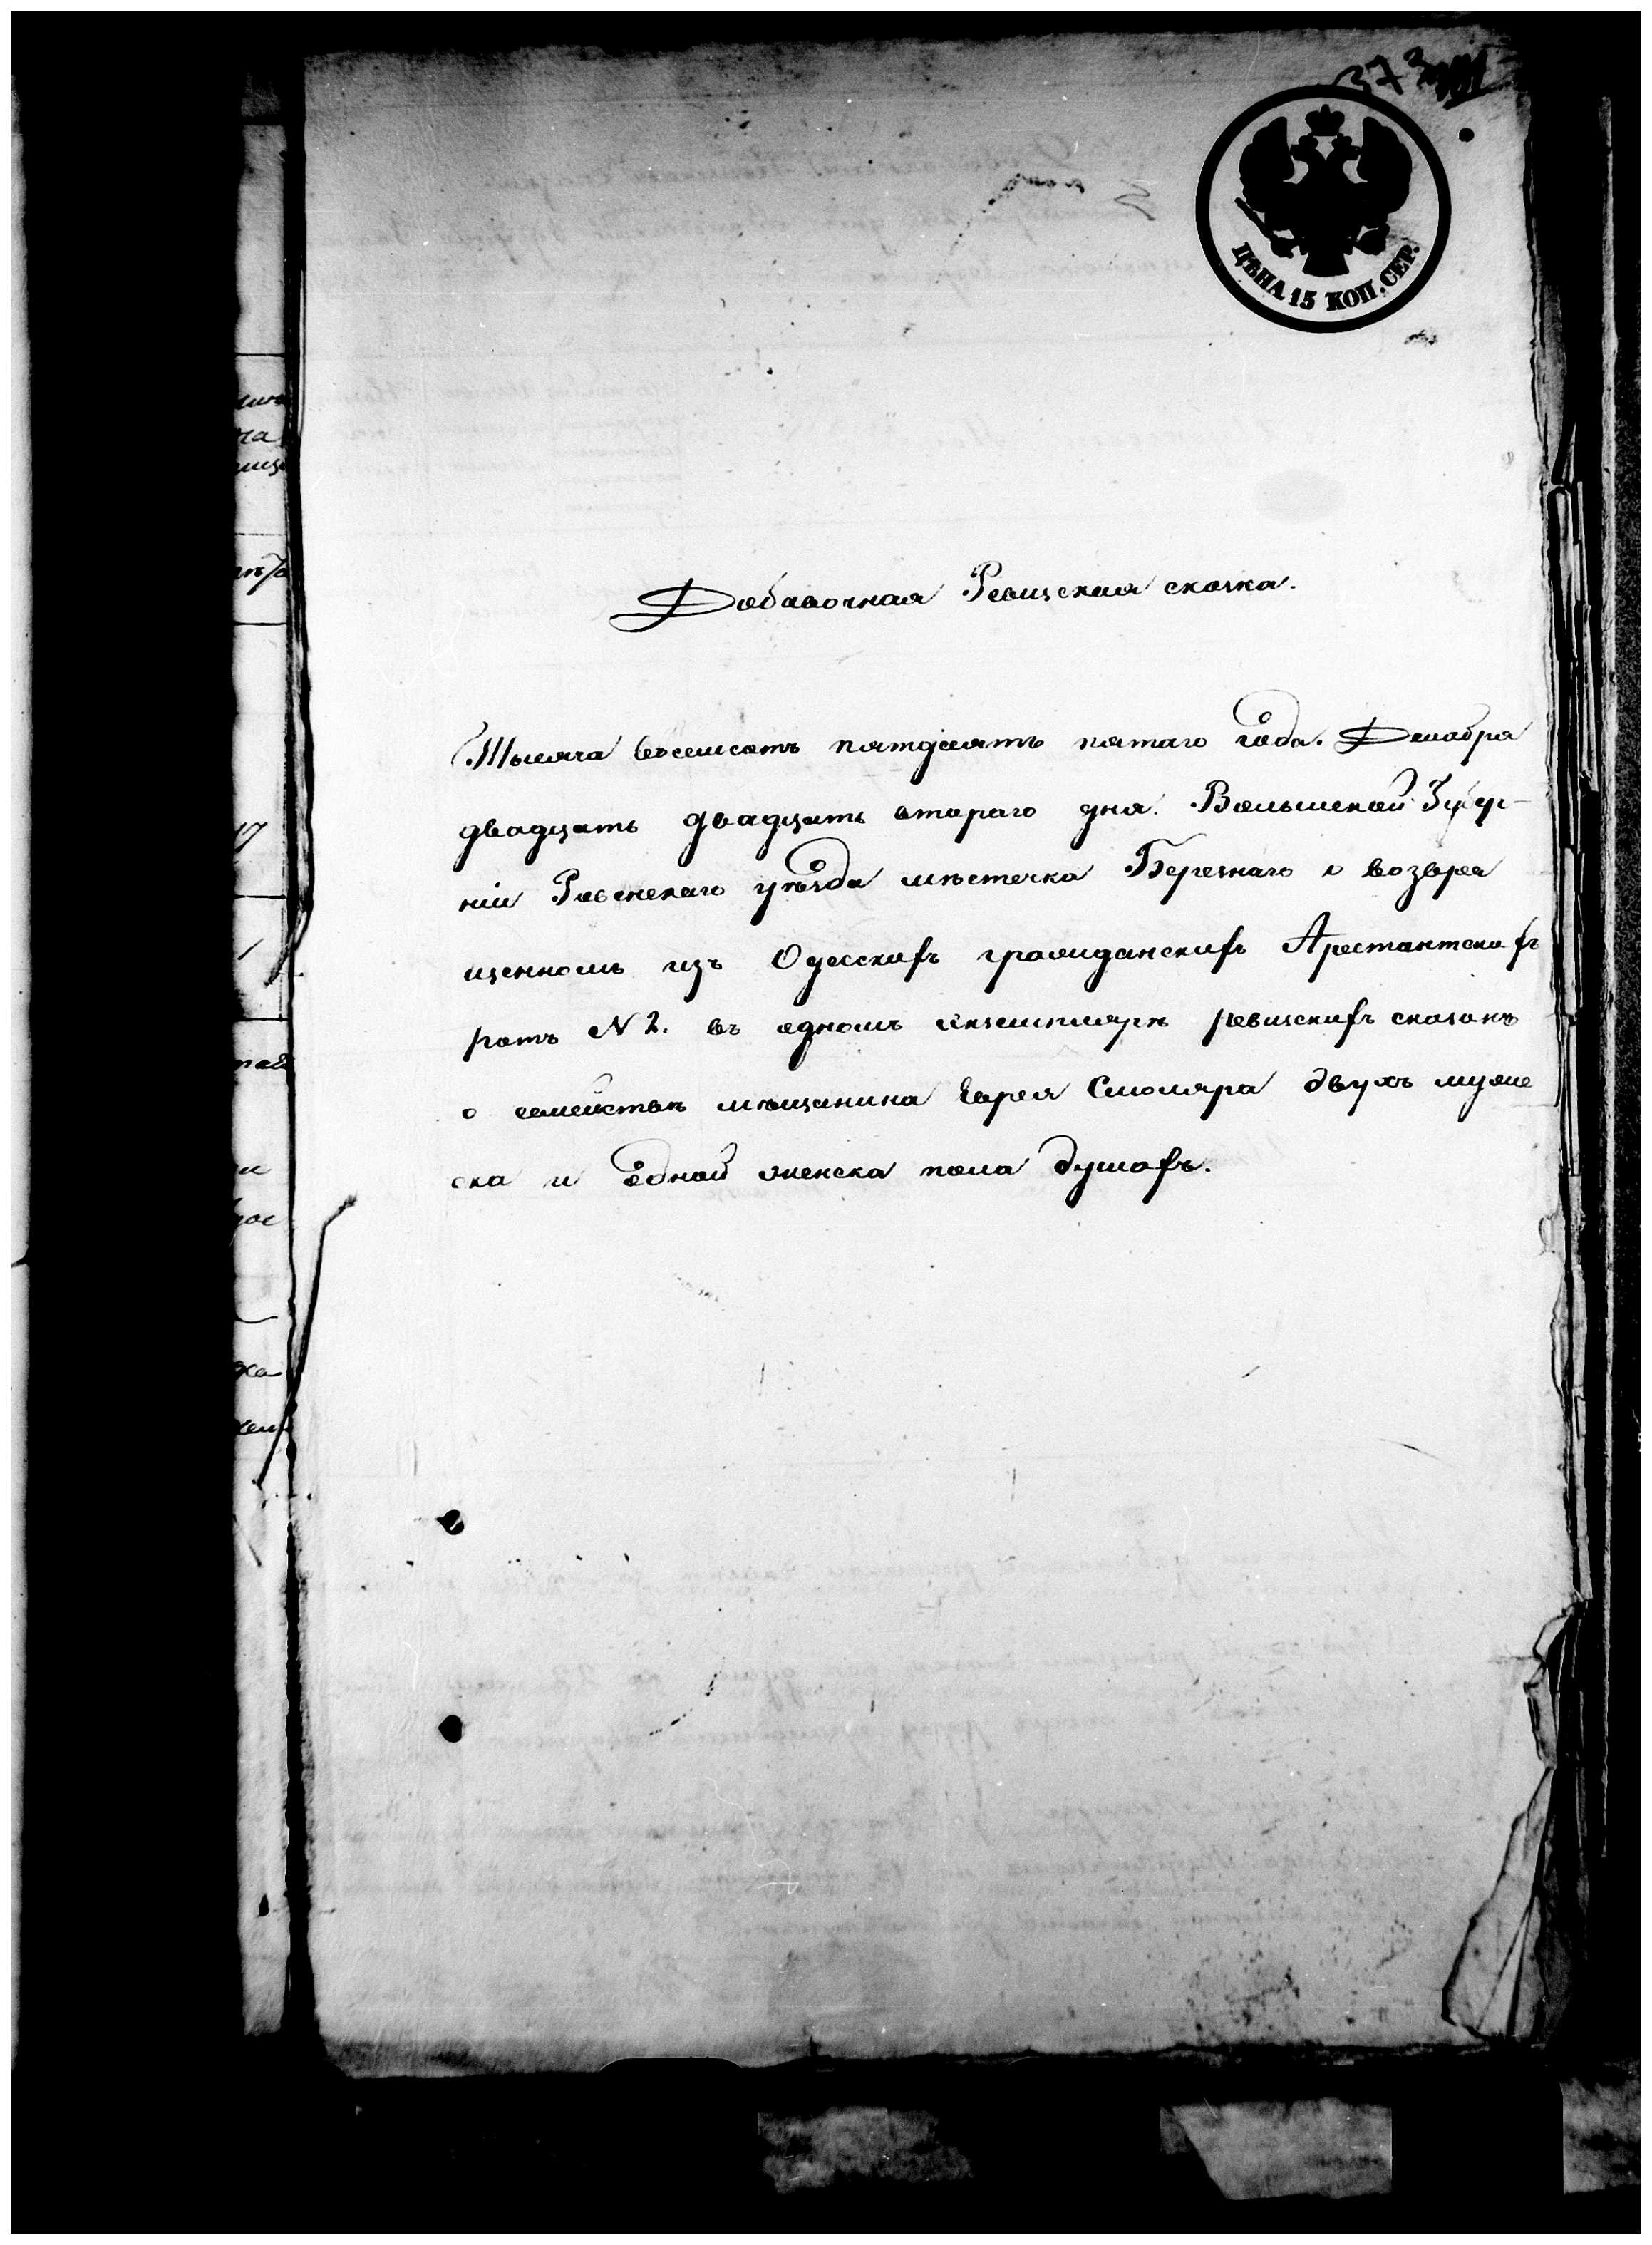 373
ЦѢНА 15 КОП. СЕР.
Добавочная Ревизская сказка.
Тысяча восемсотъ пятдесятъ пятаго года. Декабра
двадцать двадцать втораго дня. Волынской Губер-
ніи Ровенскаго уѣзда мѣстечка Березнаго о возвра
щенномъ изъ Одесскихъ гражданскихъ Арестантскихъ
ротъ N 2. въ одномъ екземплярѣ ревизскихъ сказокъ
о семействѣ мѣщанина Еврея Смоляра двухъ муже
ска и одной женска пола душахъ.